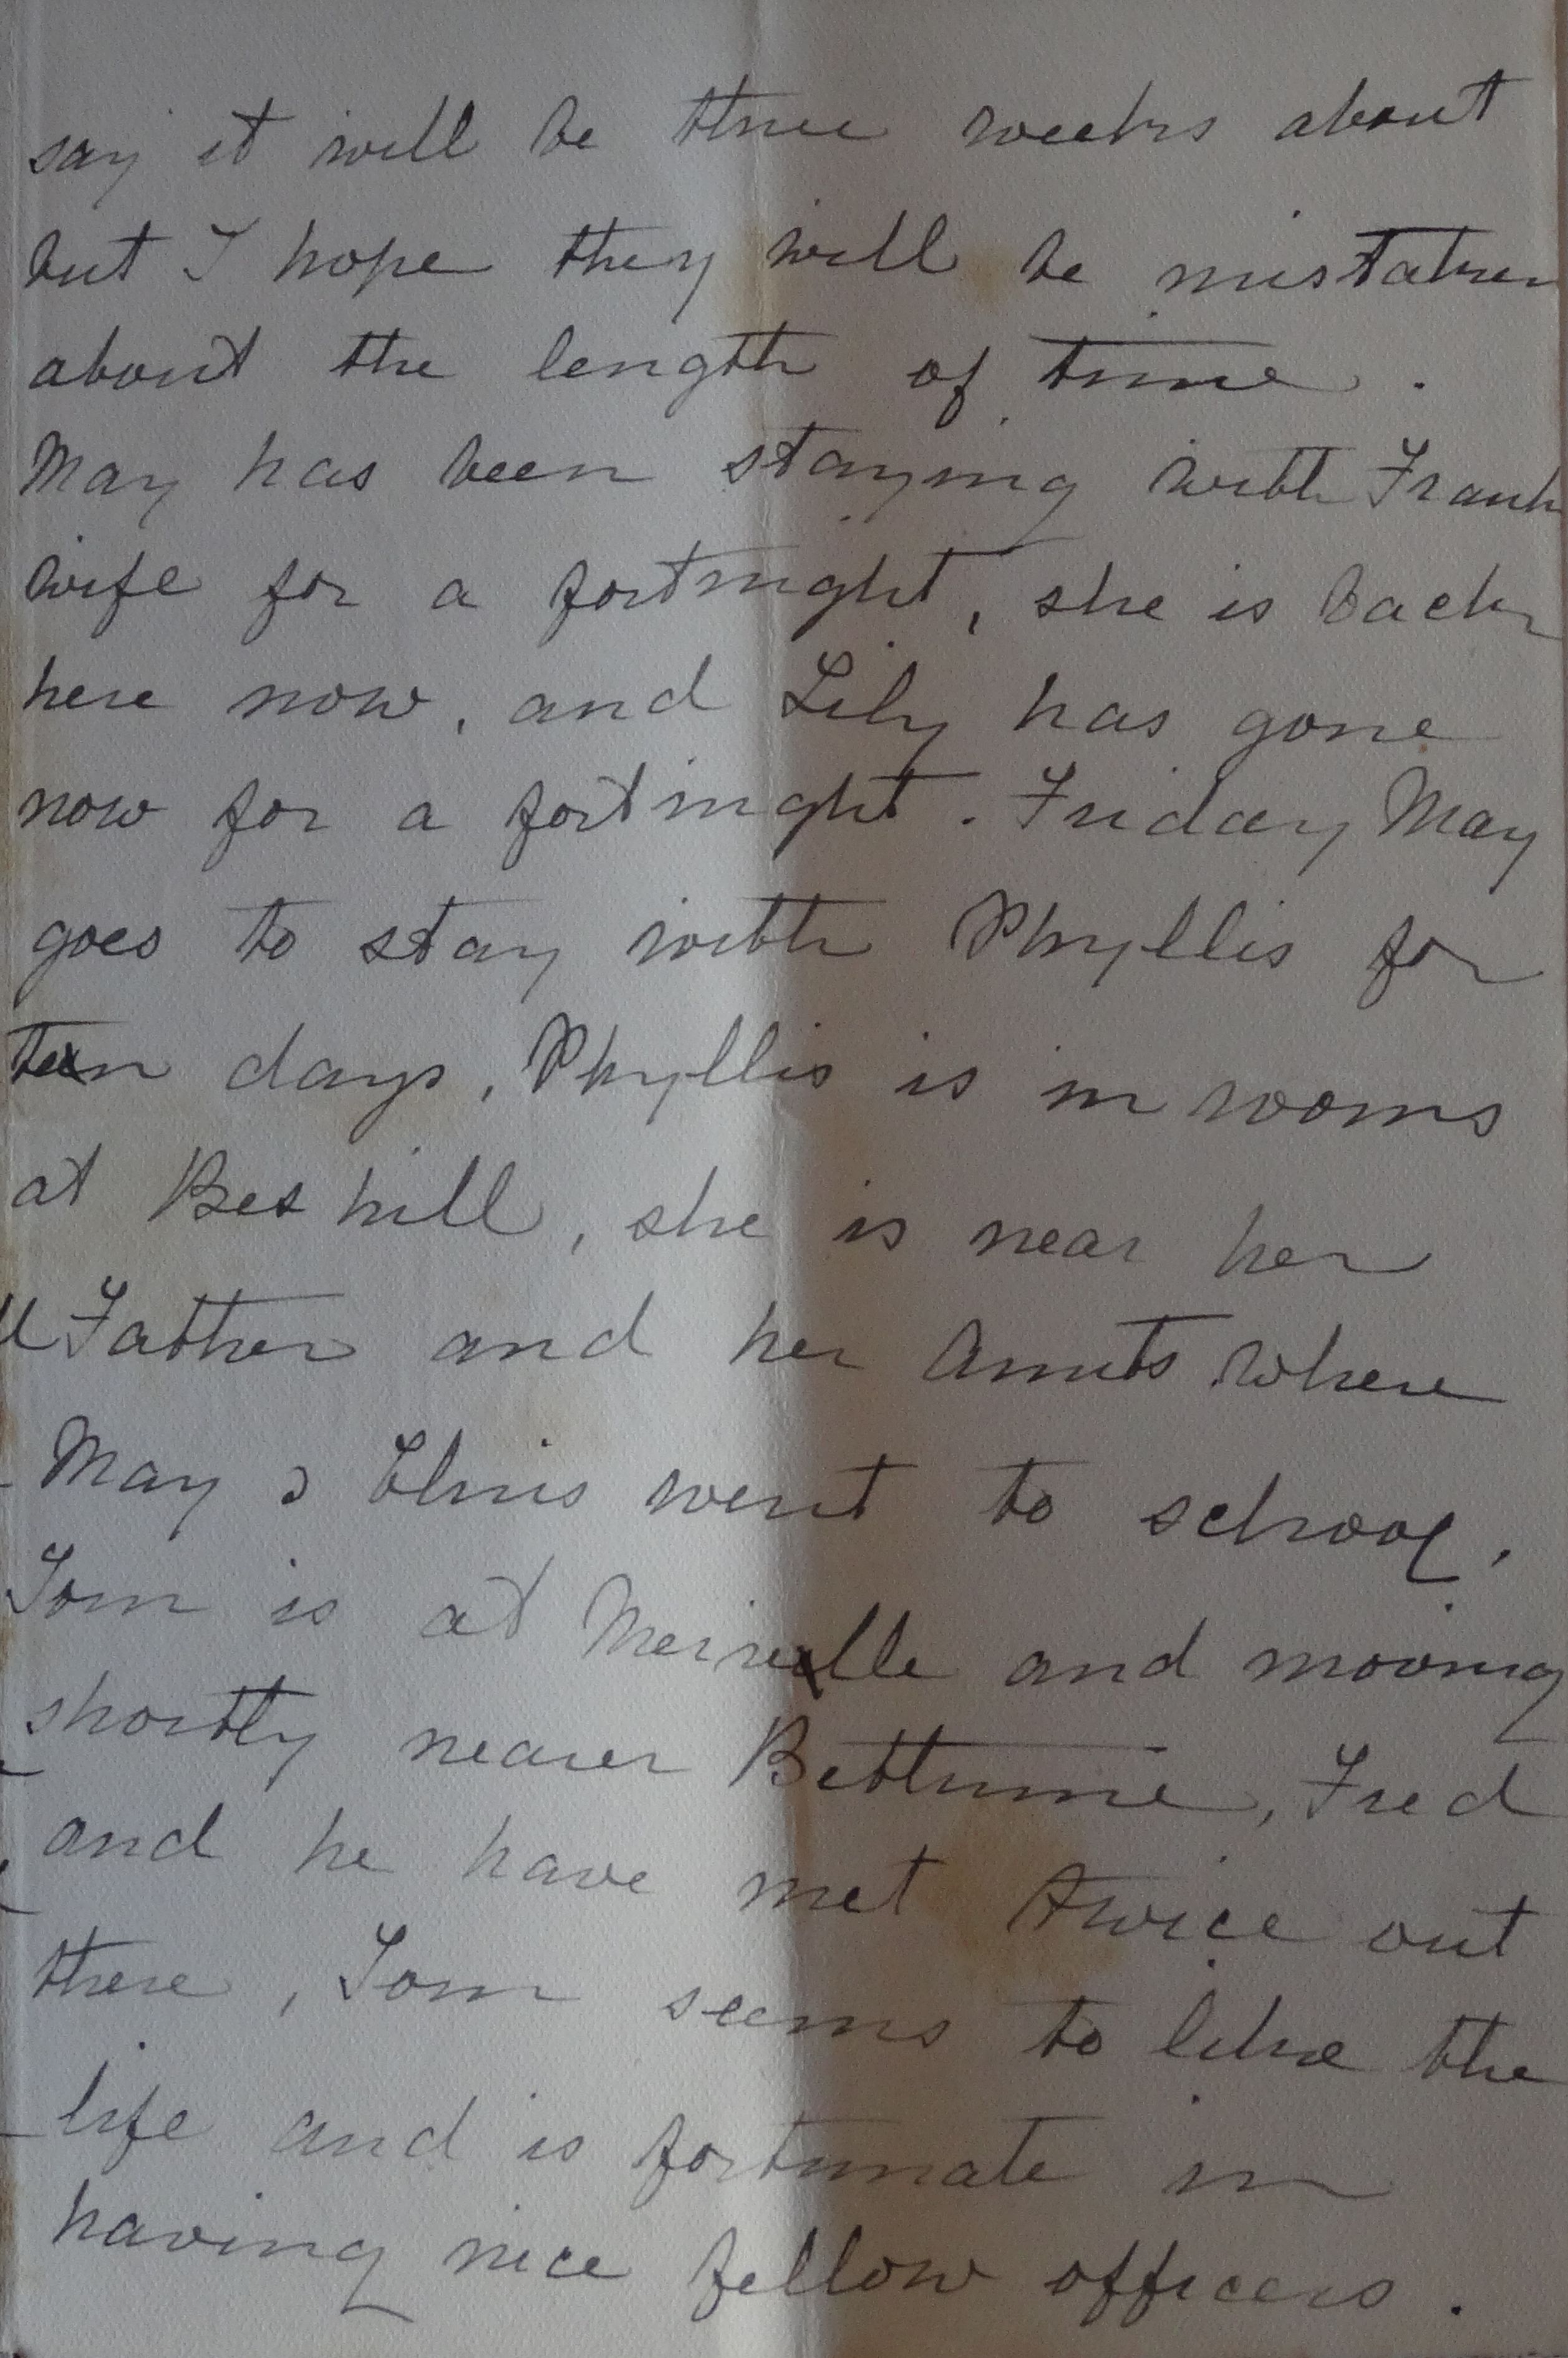 say it will be three weeks about
but I hope they will be mistaken
about the length of time.
May has been staying with Frank
wife for a fortnight, she is back
here now, and Lily has gone
now for a fortnight. Friday May
goes to stay with Phyllis for
ten days, Phyllis is in rooms
at Bexhill, she is near her
Father and her Aunts where
May & Elsie went to school,
Tom is at Merville and moving
shortly nearer Bethune, Fred
and he have met twice out
there, Tom seems to like the
life and is fortunate in
having nice fellow officers.